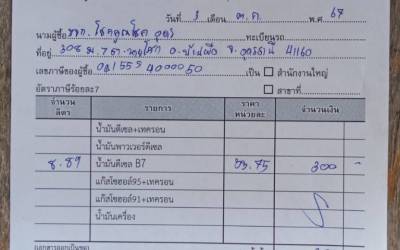 วันที่ 3 เดือน ต.ค. พ.ศ 67
นามผู้ซื้อ หจก. โชคคูณโชค อุดร ทะเบียนรถ
ที่อยู่ 308 ม.7 ต. อ.บ้านผือ จ.อุดรธานี 41160
เลขภาษีของผู้ซื้อ 041555 4000050 เป็น สำนักงานใหญ่
อัตราภาษีร้อยละ7 สาขาที่
จำนวน ลิตร รายการ ราคา หน่วยละ จำนวนเงิน
น้ำมันดีเซล+เทครอน
น้ำมันพาวเวอร์ดีเซล
8.89 น้ำมันดีเซล B7 33.75 300
แก๊สโซฮอล์95+เทครอน
แก๊สโซฮอล์91+เทครอน
น้ำมันเครื่อง